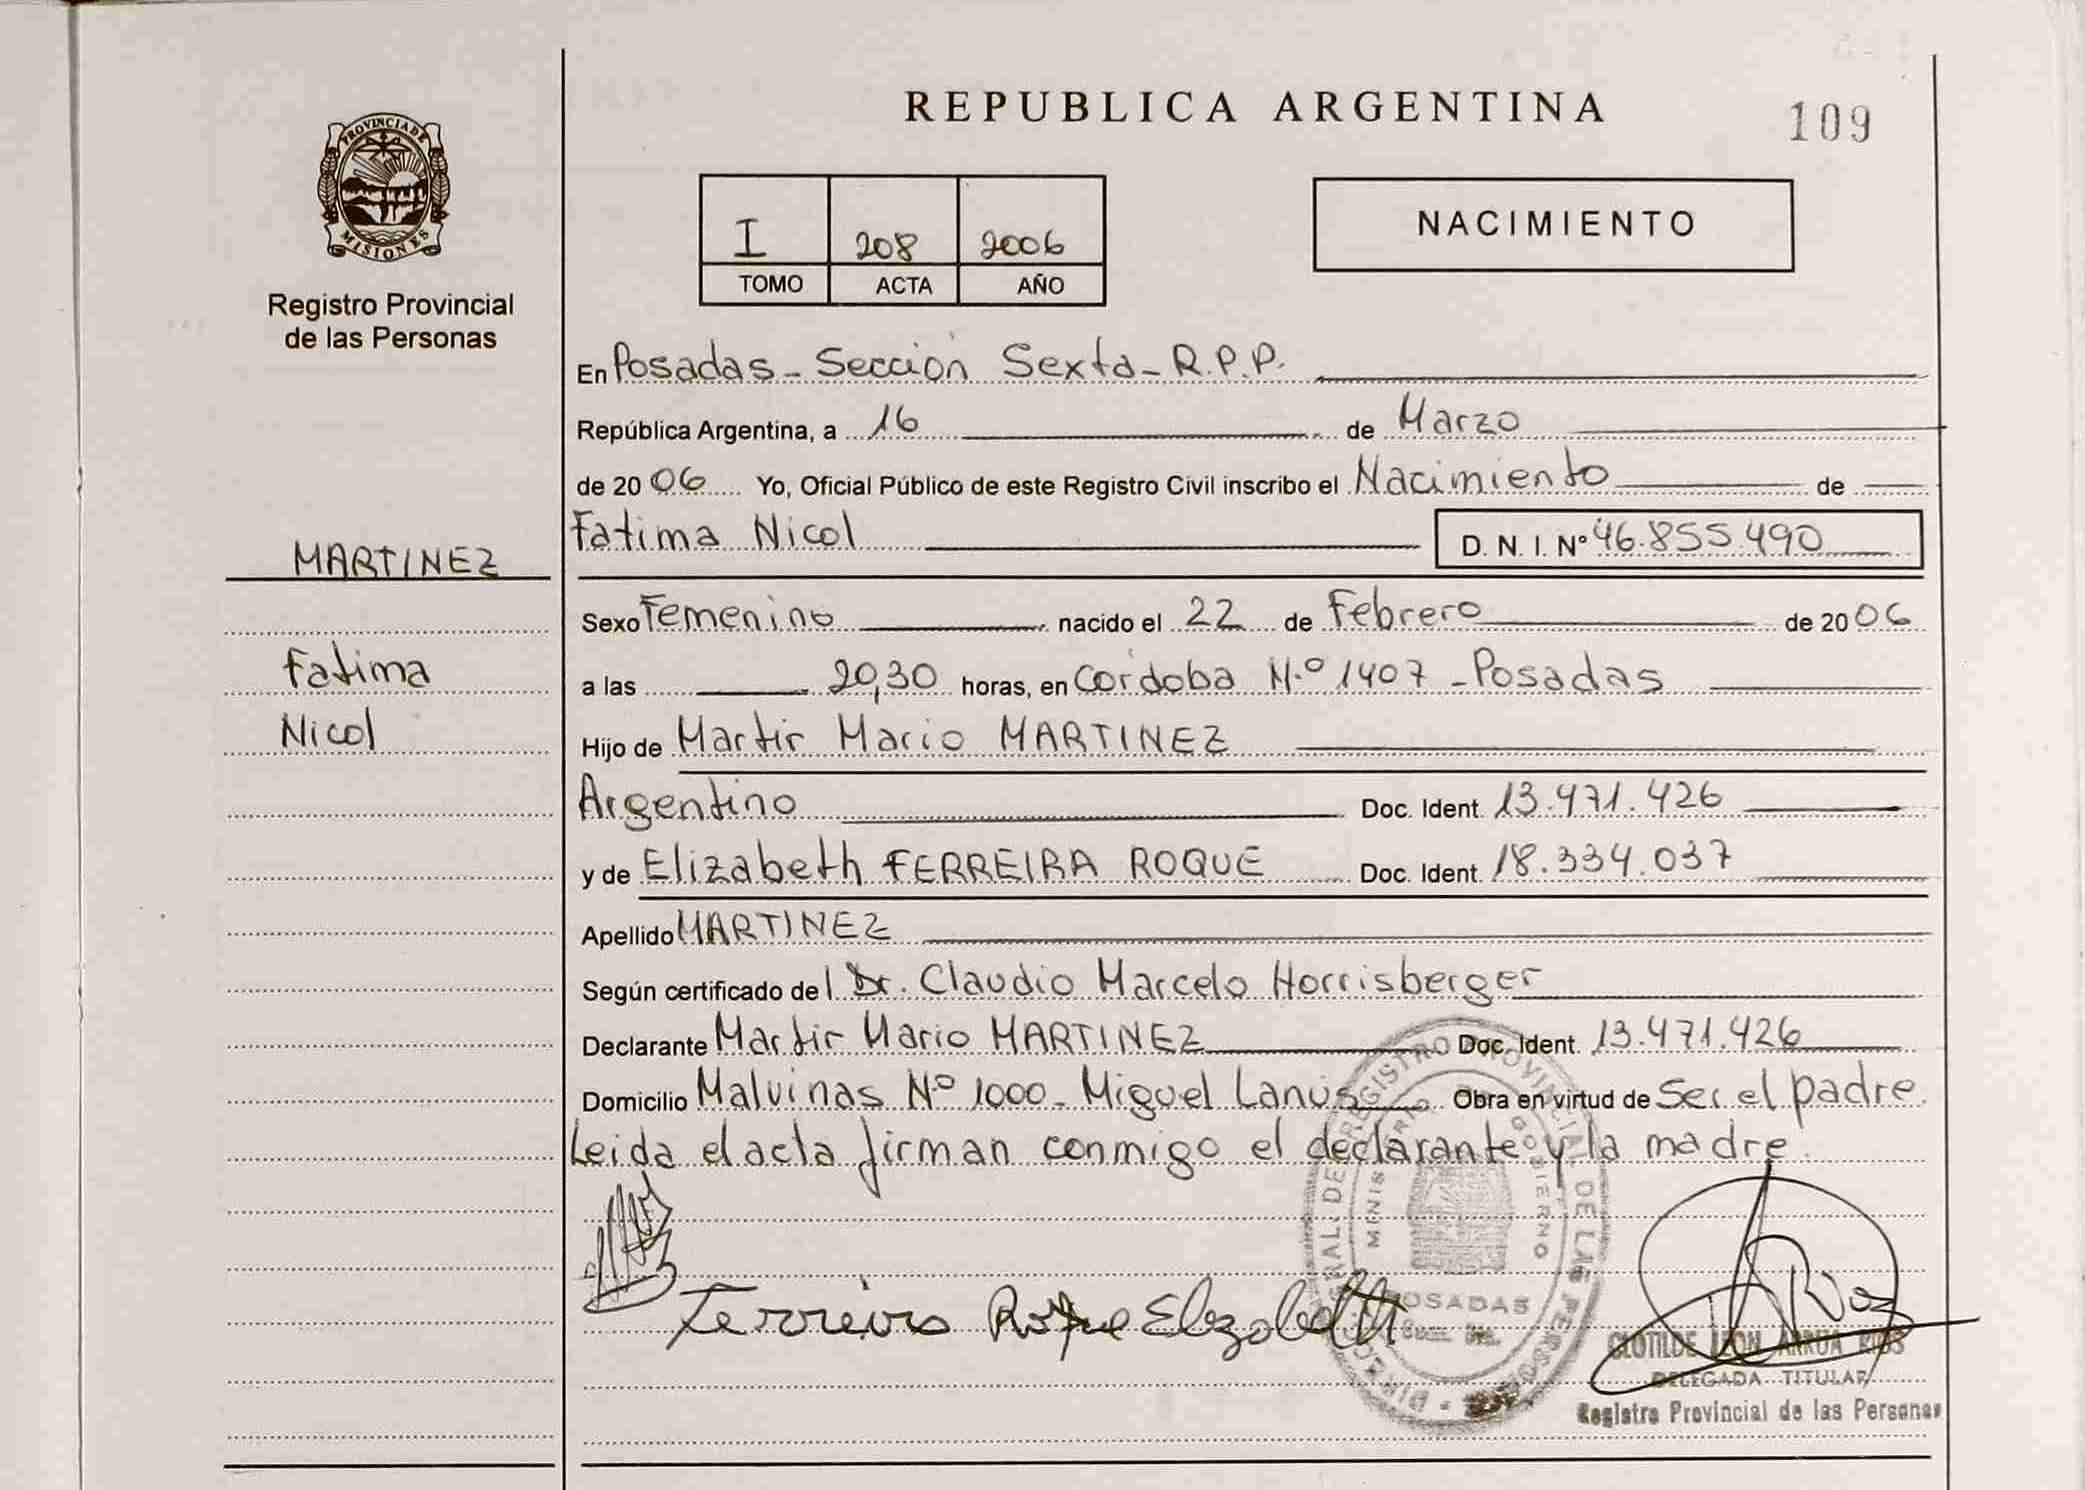 REPUBLICA ARGENTINA
109
PROVINCIA DE
MISIONES
Registro Provincial
de las Personas
I 208 2006
TOMO ACTA AÑO
NACIMIENTO
En Posadas - Sección Sexta - R.P.P.
República Argentina, a 16 de Marzo
de 2006 Yo, Oficial Público de este Registro Civil inscribo el Nacimiento de
MARTINEZ
Fatima Nicol D. N. I. Nº 46.855.490
Sexo Femenino nacido el 22 de Febrero de 2006
Fatima
a las 20,30 horas, en Cordoba N.º 1407 - Posadas
Nicol
Hijo de Martir Mario MARTINEZ
Argentino Doc. Ident. 13.471.426
y de Elizabeth FERREIRA ROQUE Doc. Ident. 18.334.037
Apellido MARTINEZ
Según certificado del Dr. Claudio Marcelo Horrisberger
Declarante Martir Mario MARTINEZ Doc. Ident. 13.471.426
Domicilio Malvinas Nº 1000 - Miguel Lanús Obra en virtud de Ser el padre.
Leida el acta firman conmigo el declarante y la madre.
Ferreira Roque Elizabeth
POSADAS
CLOTILDE LEON ARRUA RIOS
DELEGADA TITULAR
Registro Provincial de las Personas